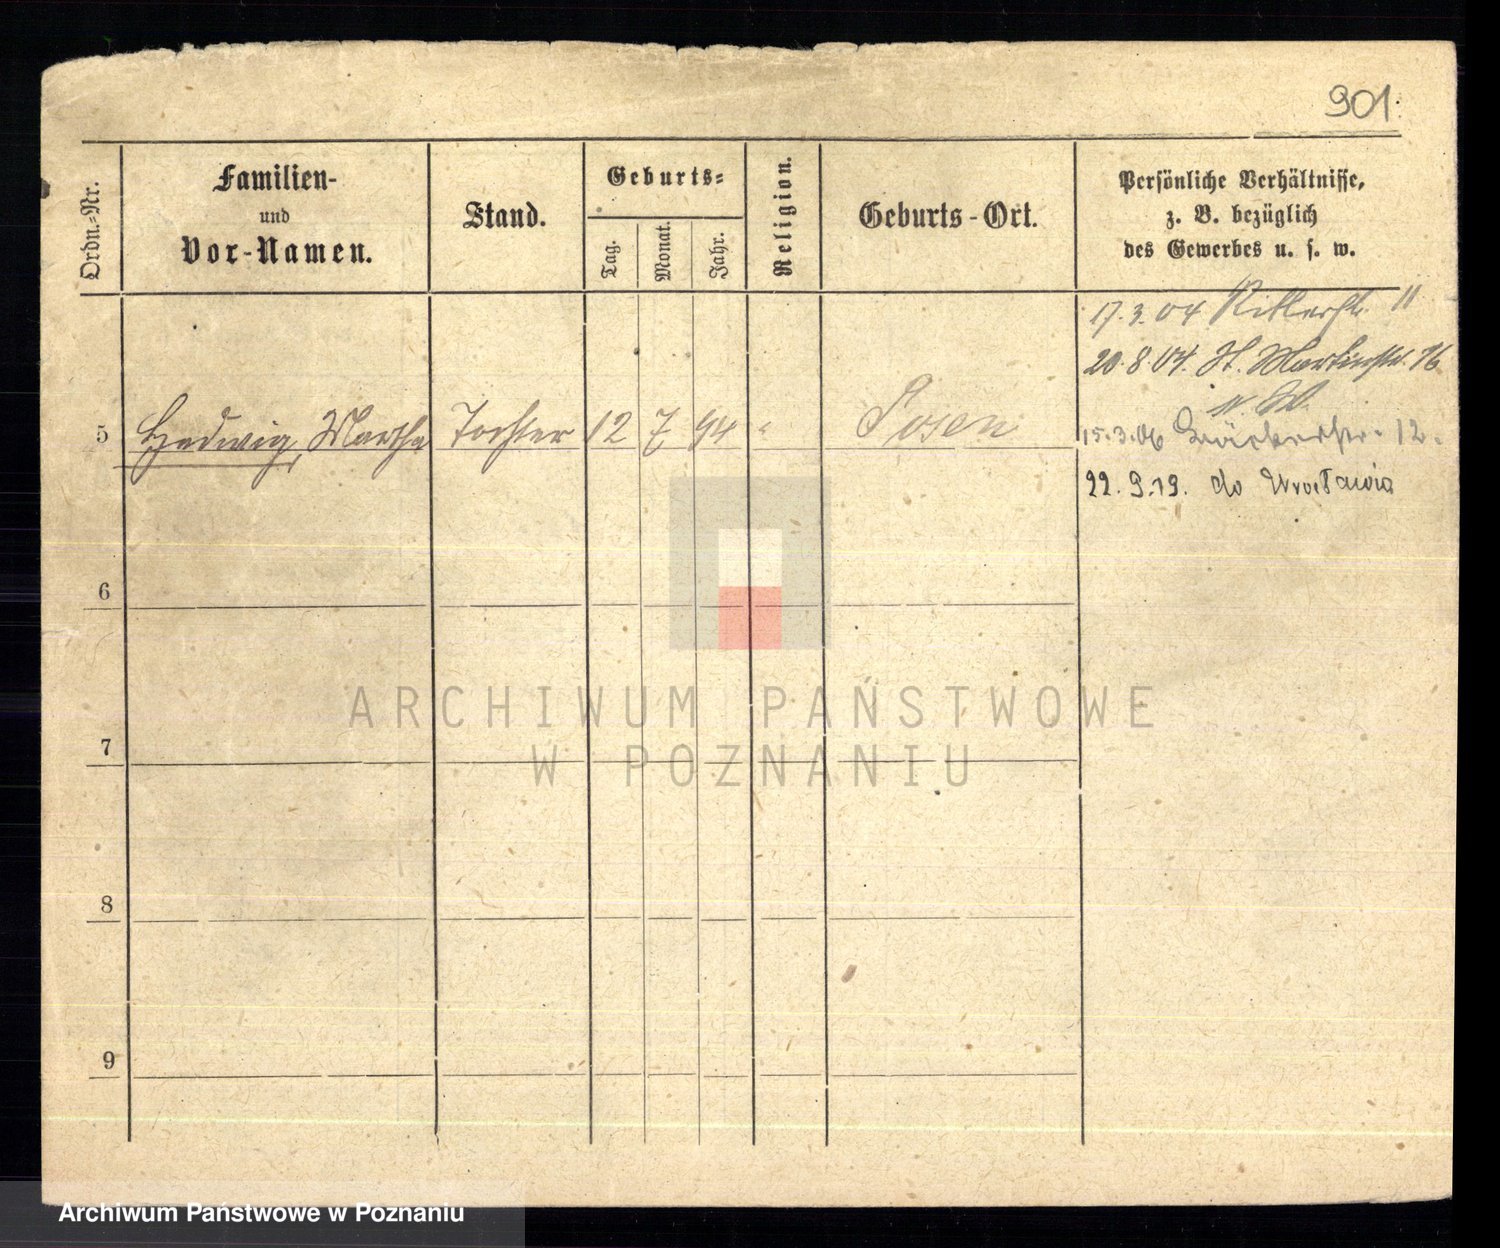 901.
Ordn.-Nr.
Familien-
und
Vor-Namen.
Stand.
Geburts-
Tag.
Monat.
Jahr.
Religion.
Geburts-Ort.
Persönliche Verhältnisse,
z. B. bezüglich
des Gewerbes u. s. w.
17.3.04 Ritterstr. 11
20.8.04. St. Martinstr. 76
5 Hedwig, Martha Tochter 12 7 94 " Posen
15.3.06 12.
22.9.19. do Wrocławia
6
7
8
9
ARCHIWUM PAŃSTWOWE
W POZNANIU
Archiwum Państwowe w Poznaniu